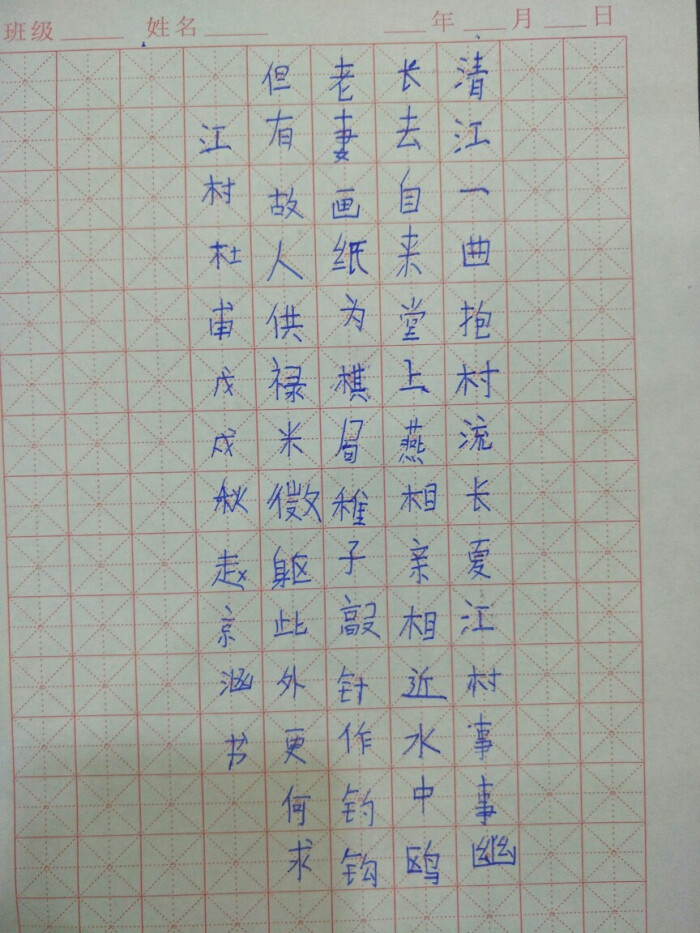 班级 姓名 年 月 日
清江一曲抱村流长夏江村事事幽
长去自来堂上燕相亲相近水中鸥
老妻画纸为棋局稚子敲针作钓钩
但有故人供禄米微躯此外更何求
江村杜甫戊戌秋赵京涵书